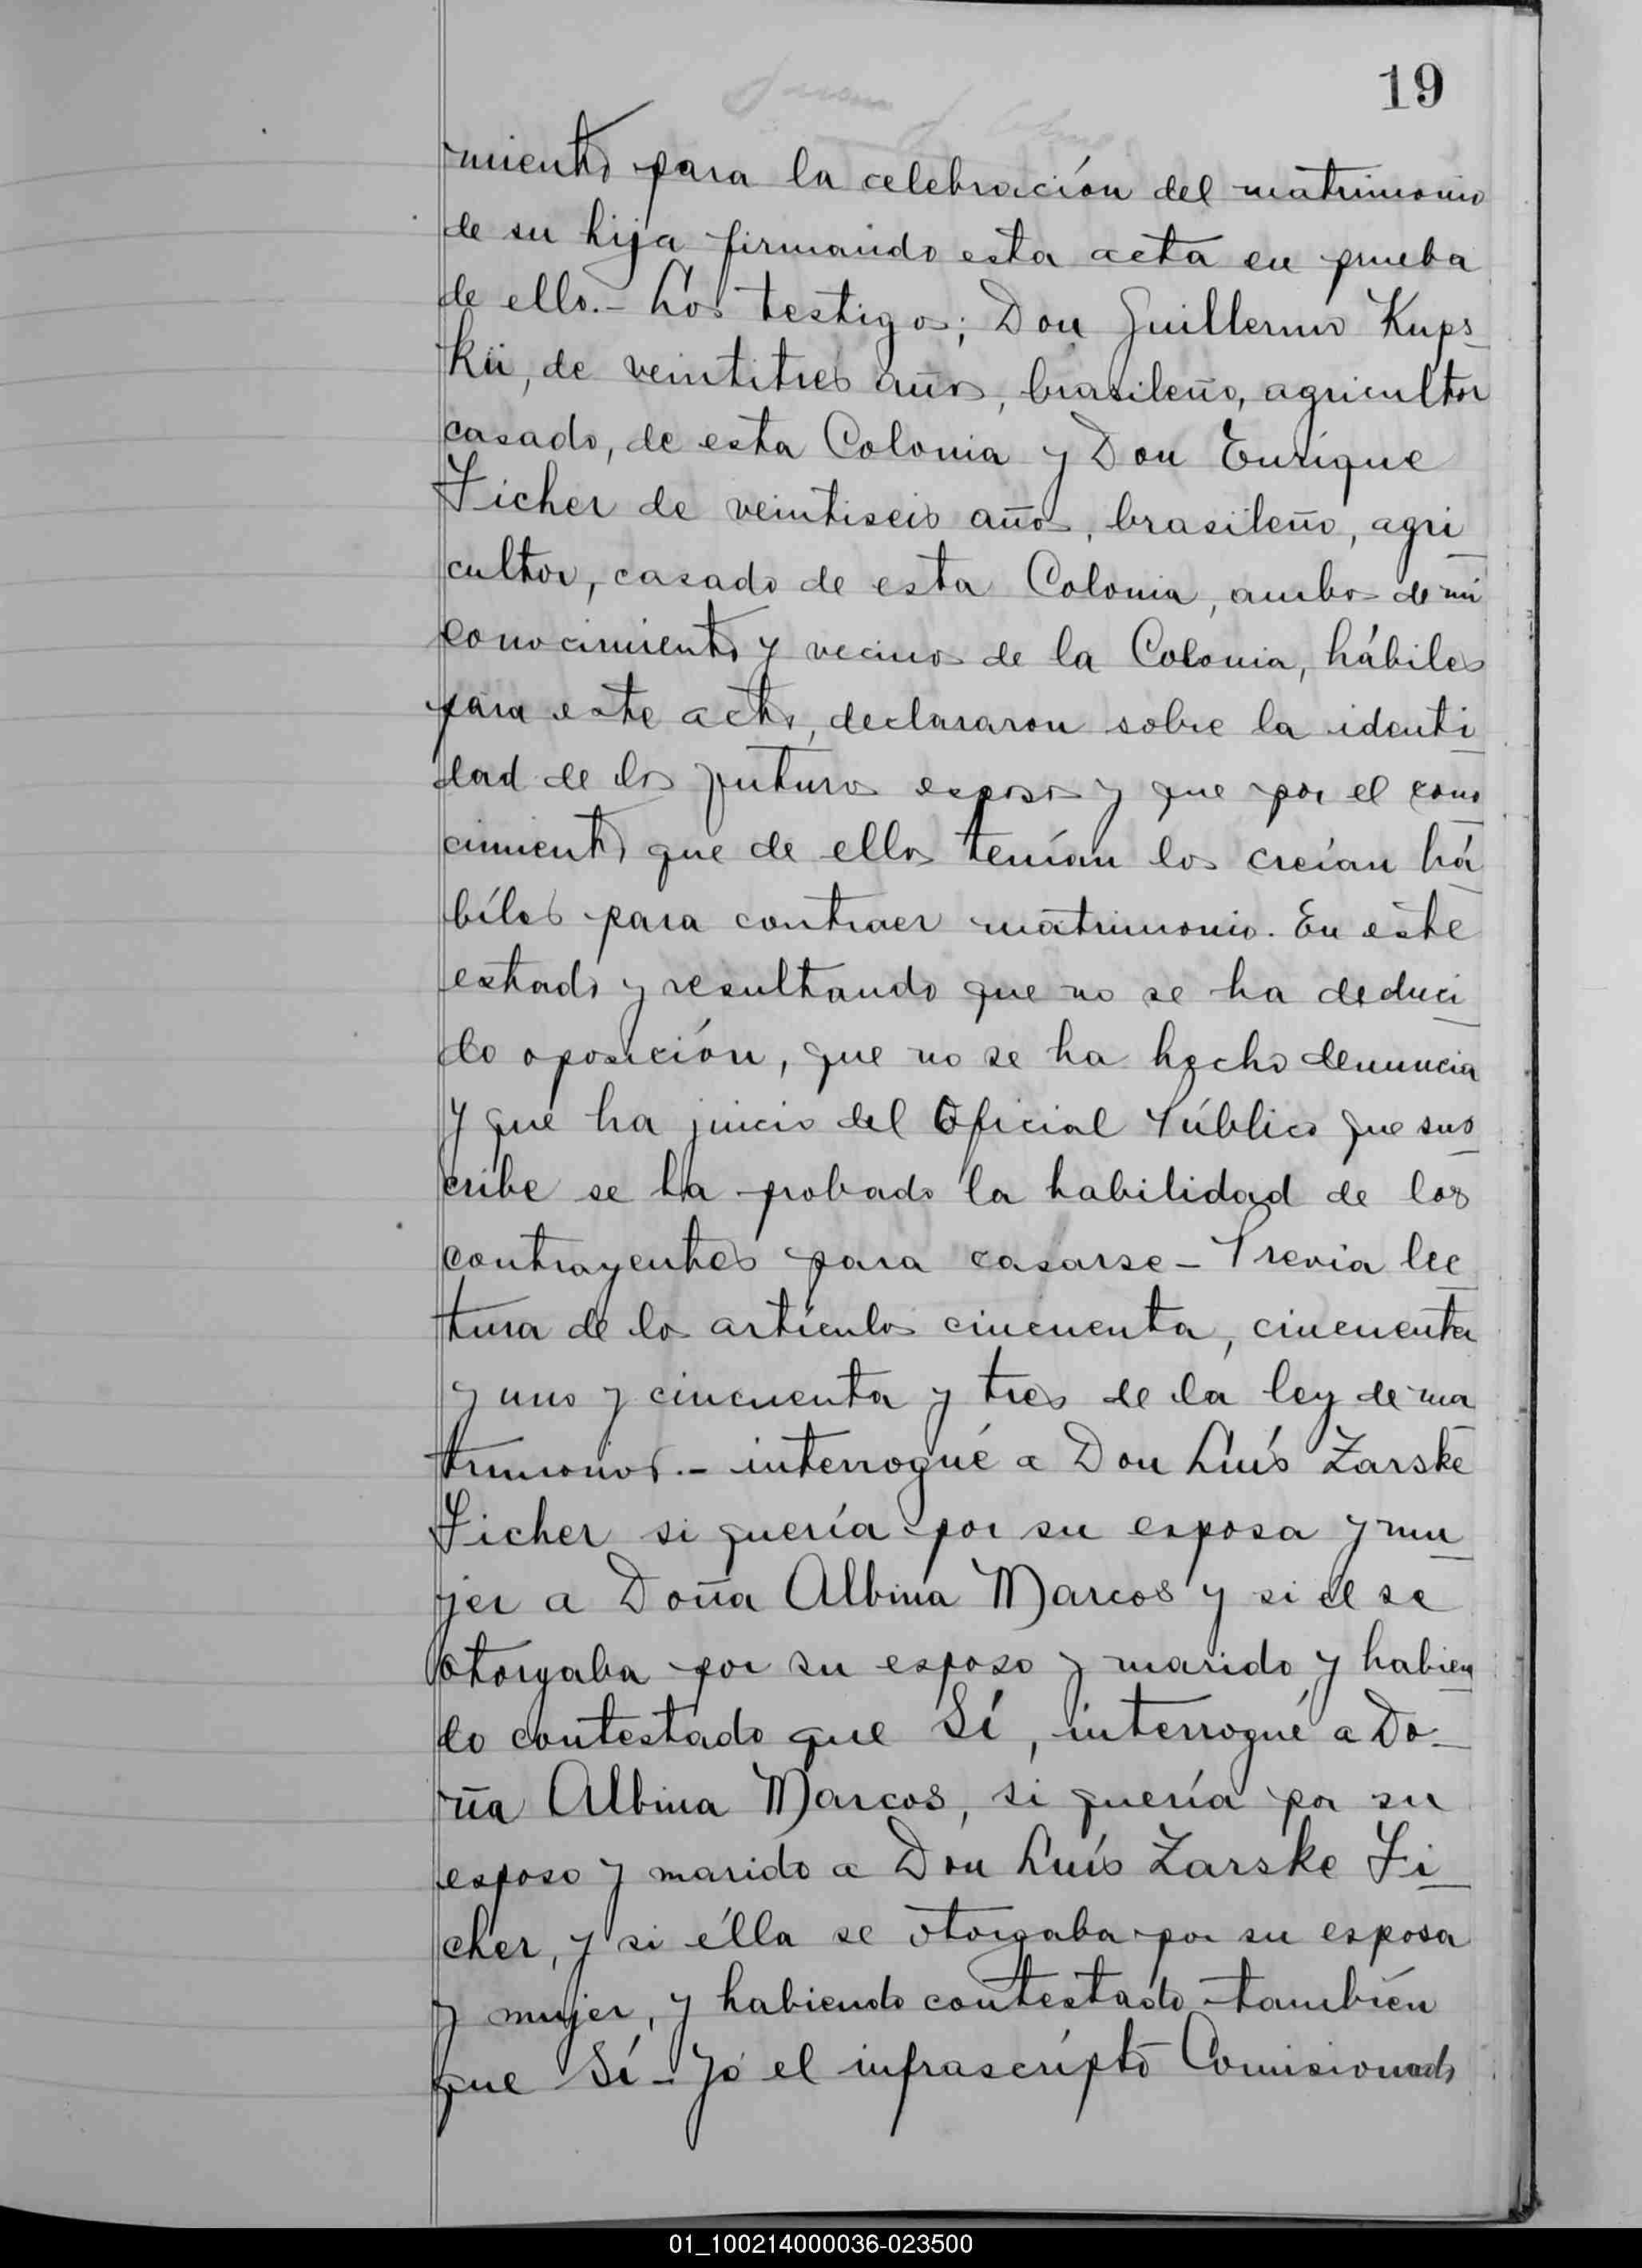 19
miento para la celebración del matrimonio
de su hija firmando esta acta en prueba
de ello.- Los testigos; Don Guillermo Kups
kü, de veintitres años, brasileño, agricultor
casado, de esta Colonia y Don Enrique
Ficher de veintiseis años, brasileño, agri
cultor, casado de esta Colonia, ambos de mi
conocimiento y vecinos de la Colonia, hábiles
para este acto, declararon sobre la identi
dad de los futuros esposos y que por el cono
cimiento que de ellos tenían los creían há
bíles para contraer matrimonio. En este
estado y resultando que no se ha deduci
do oposición, que no se ha hecho denuncia
y que ha juicio del Oficial Público que sus
cribe se ha probado la habilidad de los
contrayentes para casarse - Previa lec
tura de los artículos cincuenta, cincuenta
y uno y cincuenta y tres de la ley de ma
trimonios.- interrogué a Don Luís Zarske
Ficher si quería por su esposa y mu
jer a Doña Albina Marcos y si él se
otorgaba por su esposo y marido y habien
do contestado que Sí, interrogué a Do-
ña Albina Marcos, si quería por su
esposo y marido a Don Luís Zarske Fi
cher, y si élla se otorgaba por su esposa
y mujer, y habiendo contestado también
que Sí - Yó el infrascrípto Comisionado
01_100214000036-023500